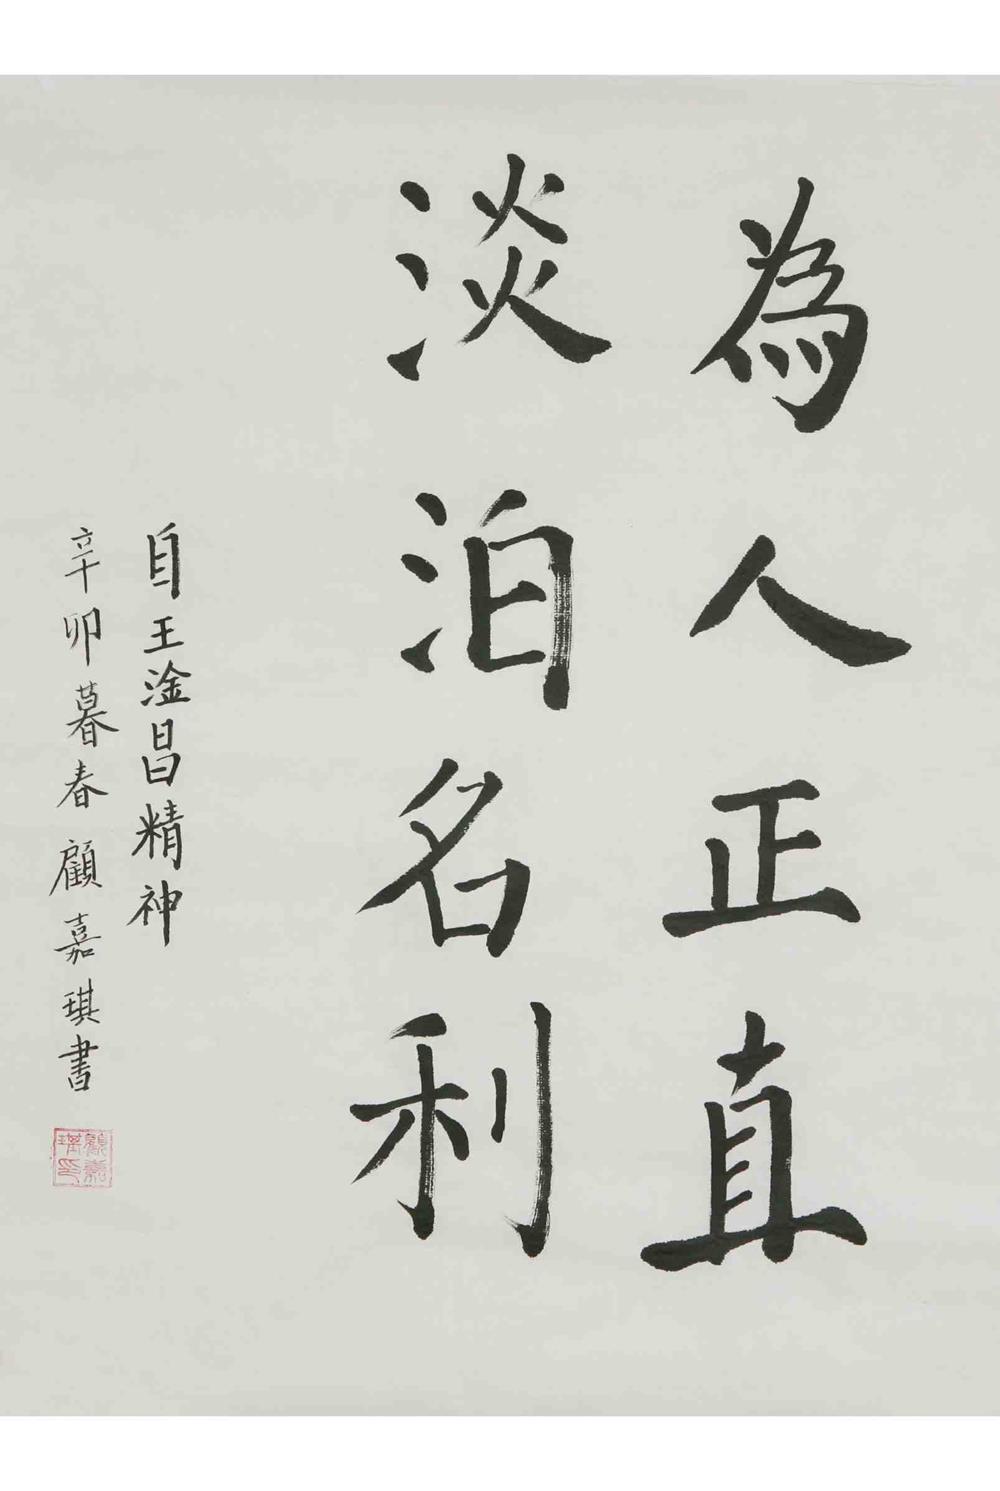 為人正真
淡泊名利
自王淦昌精神
辛卯暮春顧嘉琪書
顧嘉琪印